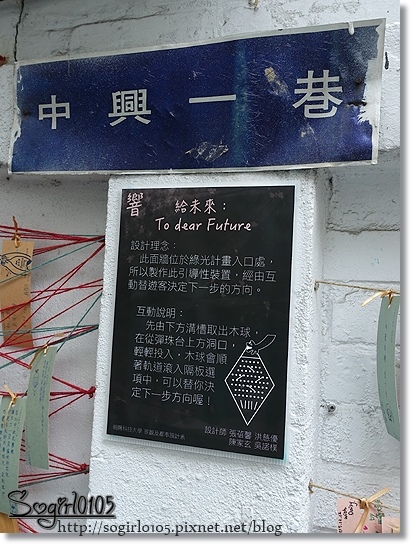 中興一巷
響
給未來：
To dear Future
設計理念：
此面牆位於綠光計畫入口處，
所以製作此引導性裝置，經由互
動替遊客決定下一步的方向。
互動說明：
先由下方溝槽取出木球，
在從彈珠台上方洞口，
輕輕投入，木球會順
著軌道滾入隔板選
項中，可以替你決
定下一步方向喔！
設計師 張蓓馨 洪慈優
陳家玄 吳諾樸
Sogirl0105
http://sogirl0105.pixnet.net/blog